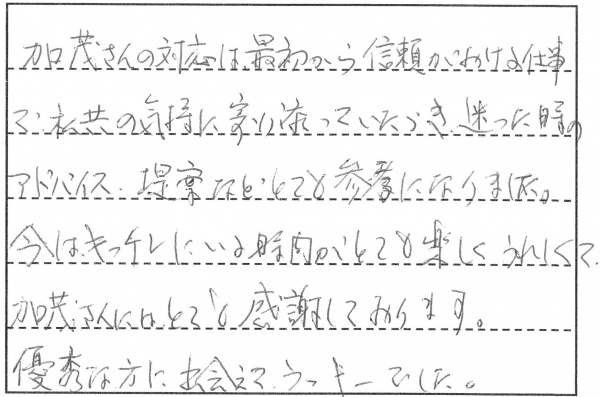 加茂さんの対応は最初から信頼がおける仕事
で、私共の気持に寄り添っていただき、迷った時の
アドバイス、提案などとても参考になりました。
今はキッチンにいる時間がとても楽しくうれしくて、
加茂さんにはとても感謝しております。
優秀な方に出会えて、ラッキーでした。